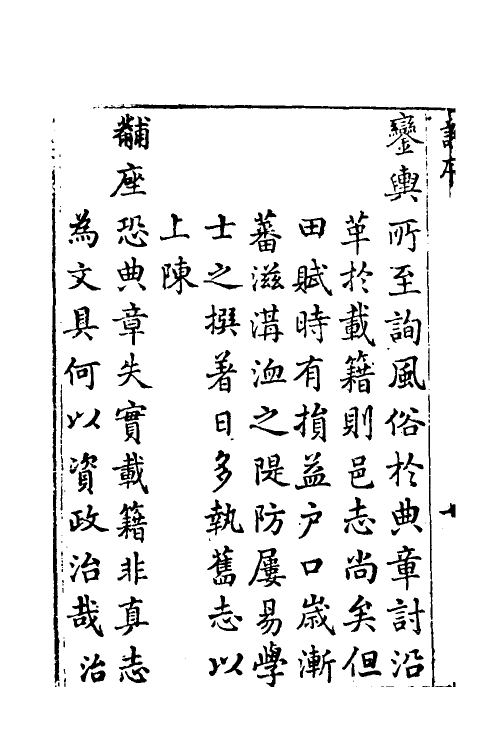 鑾輿所至詢風俗於典章討沿
革於載籍則邑志尚矣但
田賦時有損益户口歲漸
蕃滋溝洫之隄防屢易學
士之撰著日多執舊志以
上陳
黼座恐典章失實載籍非真志
為文具何以資政治哉治